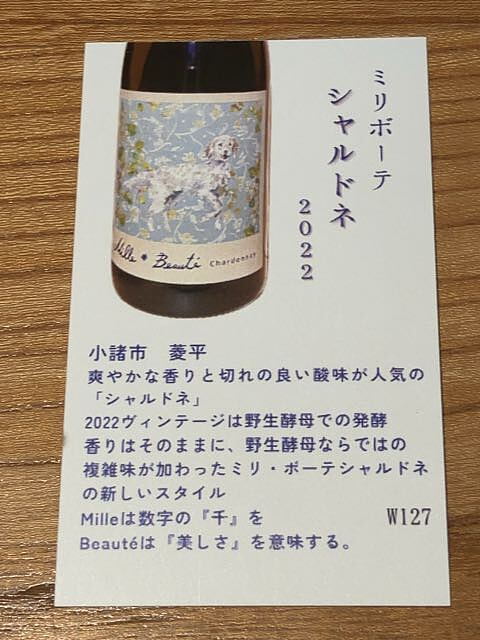 ミリボーテ
シャルドネ
2022
Mille Beauté Chardonnay
小諸市 菱平
爽やかな香りと切れの良い酸味が人気の
「シャルドネ」
2022ヴィンテージは野生酵母での発酵
香りはそのままに、野生酵母ならではの
複雑味が加わったミリ・ボーテシャルドネ
の新しいスタイル
Milleは数字の『千』を
W127
Beautéは『美しさ』を意味する。